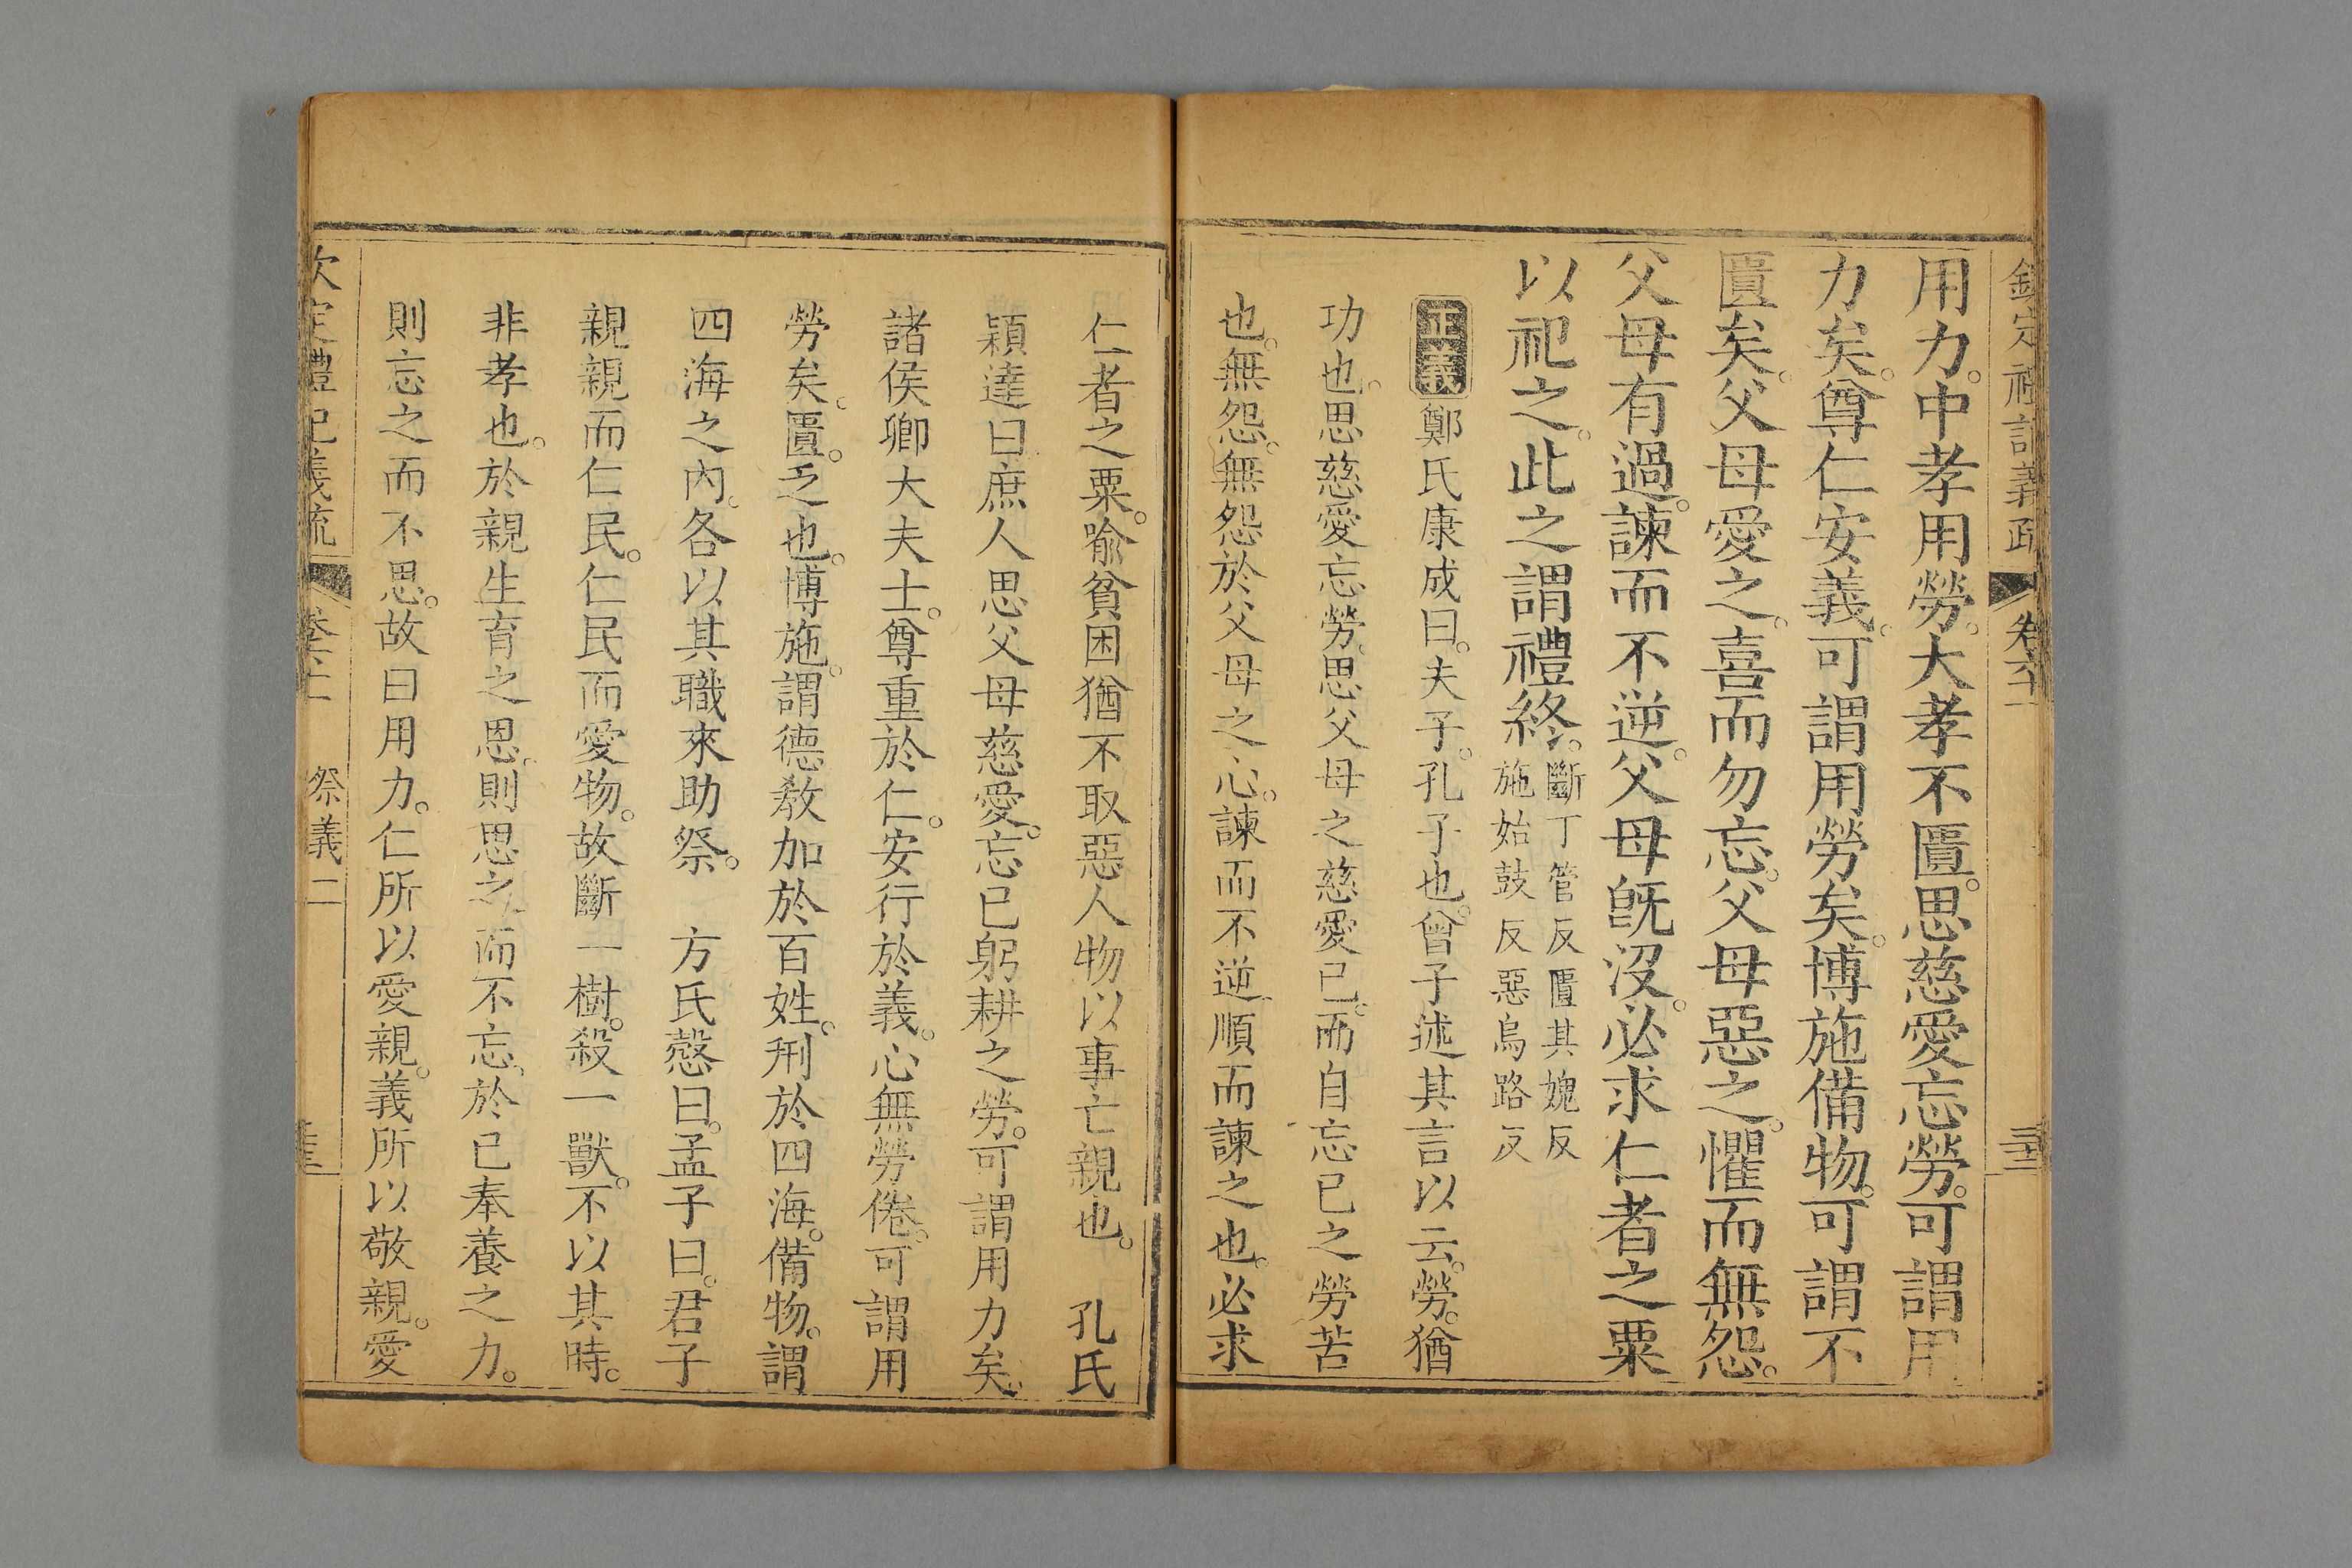 用力。中孝用勞。大孝不匱。思慈愛忘勞。可謂用
力矣。尊仁安義。可謂用勞矣。博施備物。可謂不
匱矣。父母愛之。喜而勿忘。父母惡之。懼而無怨。
父母有過。諫而不逆。父母旣沒。必求仁者之粟
以祀之。此之謂禮終。斷丁管反匱其媿反
施始鼓反惡烏路反
正義鄭氏康成曰。夫子。孔子也。曾子述其言以云。勞。猶
功也。思慈愛忘勞。思父母之慈愛已。而自忘已之勞苦
也。無怨。無怨於父母之心。諫而不逆。順而諫之也。必求
仁者之粟。喻貧困猶不取惡人物以事亡親也。 孔氏
穎達曰庶人思父母慈愛。忘已躬耕之勞。可謂用力矣。
諸侯卿大夫士。尊重於仁。安行於義。心無勞倦。可謂用
勞矣。匱。乏也。博施。謂德敎加於百姓。刑於四海。備物。謂
四海之內。各以其職來助祭。 方氏慤曰。孟子曰。君子
親親而仁民。仁民而愛物。故斷一樹。殺一獸。不以其時。
非孝也。於親生育之恩。則思之而不忘。於已奉養之力。
則忘之而不思。故曰用力。仁所以愛親。義所以敬親。愛
欽定禮記義疏 卷六十二 祭義二